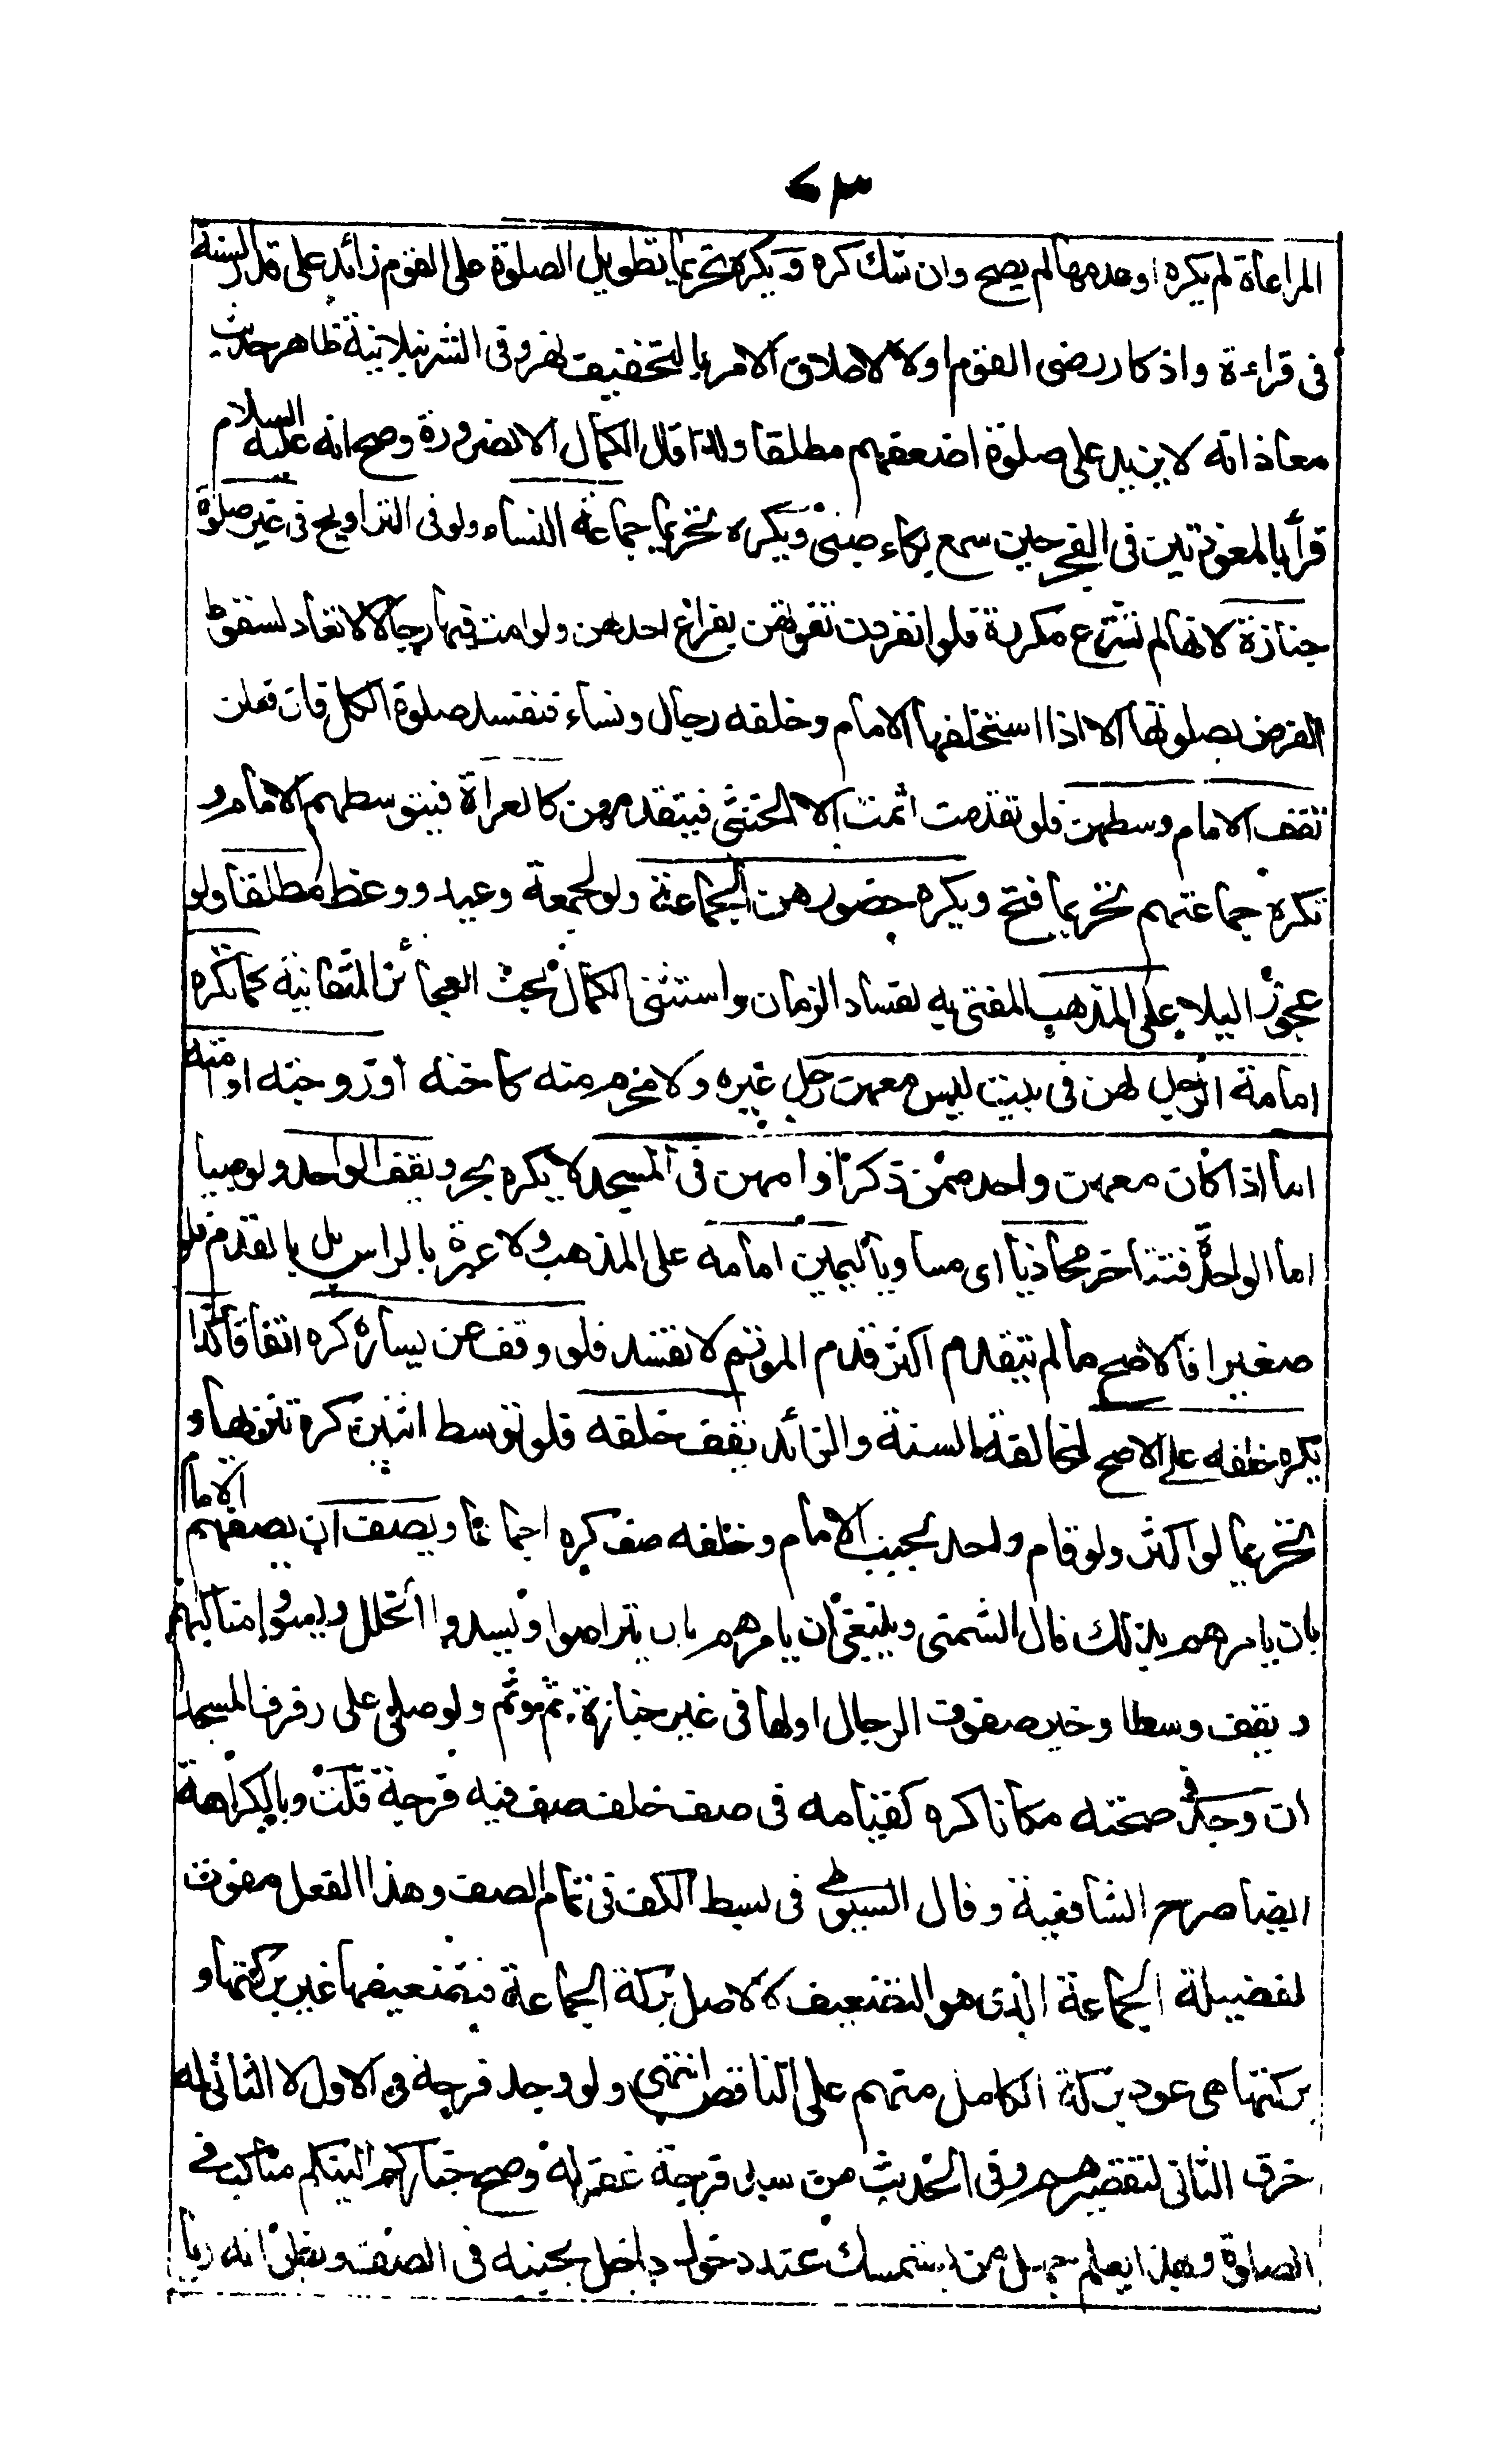 ٧٣
المراعاة لم يكره او عدمها لم يصح وان شك كره ويكره تحريما تطويل الصلوة على القوم زائد على قدر السنة
في قراءة واذكار رضى القوم اولا لاطلاق الامر بالتخفيف نهر وفى الشرنبلانية ظاهر حديث
معاذ انه لا يزيد على صلوة اضعفهم مطلقا ولذا قال الكمال الا لضرورة وصح انه عليه السلام
قرأ بالمعوذتين فى الفجر حين سمع بكاء صبى ويكره تحريما جماعة النساء ولو فى التراويح فى غير صلوة
جنازة لانها لم تشرع مكررة فلو انفردت تفوتهن بفراغ احدهن ولو امت فيها رجالا لا تعاد لسقوط
الفرض بصلوتها الا اذا استخلفها الامام وخلفه رجال ونساء فتفسد صلوة الكل فان فعلن
تقف الامام وسطهن فلو تقدمت اثمت الا الخنثى فيتقدمهن كالعراة فيتوسطهم الامام و
تكره جماعتهم تحريما فتح ويكره حضورهن الجماعة ولو لجمعة وعيد ووعظ مطلقا ولو
عجوزا ليلا على المذهب المفتى به لفساد الزمان واستثنى الكمال بحث العجائز المتفانية كما تكره
امامة الرجل لهن فى بيت ليس معهن رجل غيره ولا محرم منه كاخته او زوجته او امته
اما اذا كان معهن واحد ممن ذكر او امهن فى المسجد لا يكره بحر ويقف الواحد ولو صبيا
اما الواحدة فتتاخر محاذيا اى مساويا ليمين امامه على المذهب ولا عبرة بالراس بل بالقدم فلو
صغيرا فالاصح ما لم يتقدم اكثر قدم المؤتم لا تفسد فلو وقف عن يساره كره اتفاقا وكذا
يكره خلفه على الاصح لمخالفة السنة والزائد يقف خلفه فلو توسط اثنين كره تنزيها و
تحريما لو اكثر ولو قام واحد بجنب الامام وخلفه صف كره اجماعا ويصف ان يصفهم الامام
بان يامرهم بذلك قال الشمنى وينبغى ان يامرهم بان يتراصوا ويسدوا الخلل ويسووا مناكبهم
ويقف وسطا وخير صفوف الرجال اولها فى غير جنازة ثم وثم ولو صلى على رفرف المسجد
ان وجد فى صحنه مكانا كره كقيامه فى صف خلف صف فيه فرجة قلت وبالكراهة
ايضا صرح الشافعية وقال السيوطى فى بسيط الكف فى تمام الصف وهذا الفعل مفوت
لفضيلة الجماعة الذى هو التضعيف لا لاصل بركة الجماعة فتضعيفها غير بركتها و
بركتها هى عود بركة الكامل منهم على الناقص انتهى ولو وجد فرجة فى الاول لا الثانى له
خرق الثانى لتقصيرهم وفى الحديث من سد فرجة غفر له وصح خياركم الينكم مناكب فى
الصلوة وبهذا يعلم جهل من يستمسك عند دخول داخل بجنبه فى الصف ويظن انه ريا